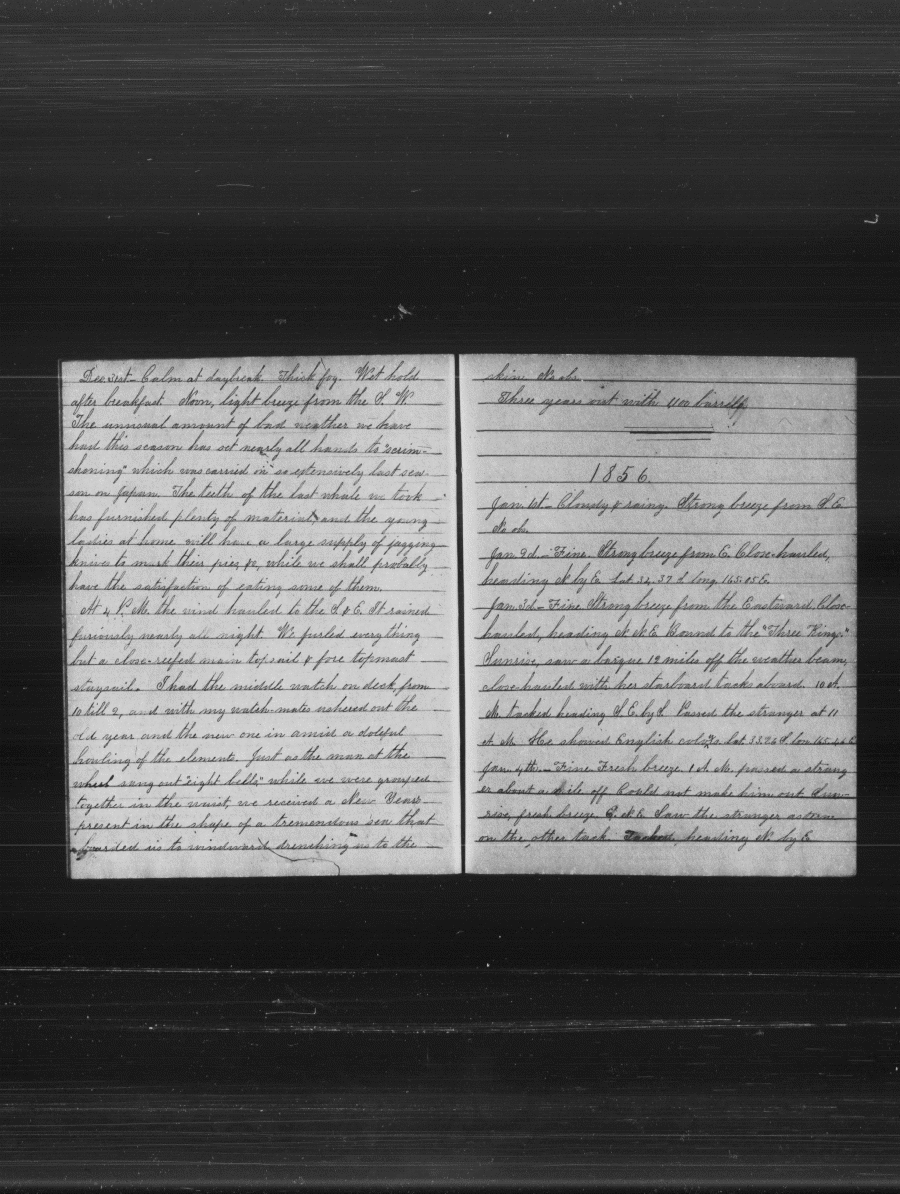 Dec. 31st - Calm at daybreak. Thick fog. Wet hold
after breakfast. Noon, light breeze from the S. W.
The unusual amount of bad weather we have
had this season has set nearly all hands to "scrim-
shoning" which was carried on so extensively last sea-
son on Japan. The teeth of the last whale we took
has furnished plenty of material, and the young
ladies at home will have a large supply of jagging
knives to mark their pies &c, while we shall probably
have the satisfaction of eating some of them.
At 4 P. M. the wind hauled to the S & E. It rained
furiously nearly all night. We furled everything
but a close-reefed main topsail & fore topmast
staysail. I had the middle watch on deck, from
10 till 2, and with my watch-mates ushered out the
old year and the new one in amid a doleful
howling of the elements. Just as the man at the
wheel sang out "eight bells," while we were grouped
together in the waist, we received a New Years
present in the shape of a tremendous sea that
boarded us to windward drenching us to the
skin. No obs.
Three years out with 1100 barrels,
1856.
Jan. 1st - Cloudy & rainy. Strong breeze from S. E.
No obs.
Jan. 2d - Fine. Strong breeze from E. Close-hauled,
heading N. by E. Lat. 34.37 S. long. 165.05 E.
Jan. 3d - Fine. Strong breeze from the Eastward. Close-
hauled, heading N. N. E. Bound to the "Three Kings."
Sunrise, saw a barque 12 miles off the weather beam,
close-hauled with her starboard tacks aboard. 10 A.
M. tacked heading S. E. by S. Passed the stranger at 11
A. M. He showed English colors. Lat. 33.26 S. lon. 165.46 E
Jan. 4th - Fine. Fresh breeze. 1 A. M. passed a strang
er about a mile off. Could not make him out. Sun-
rise, fresh breeze E. N. E. Saw the stranger astern
on the other tack. Tacked, heading N. by E.